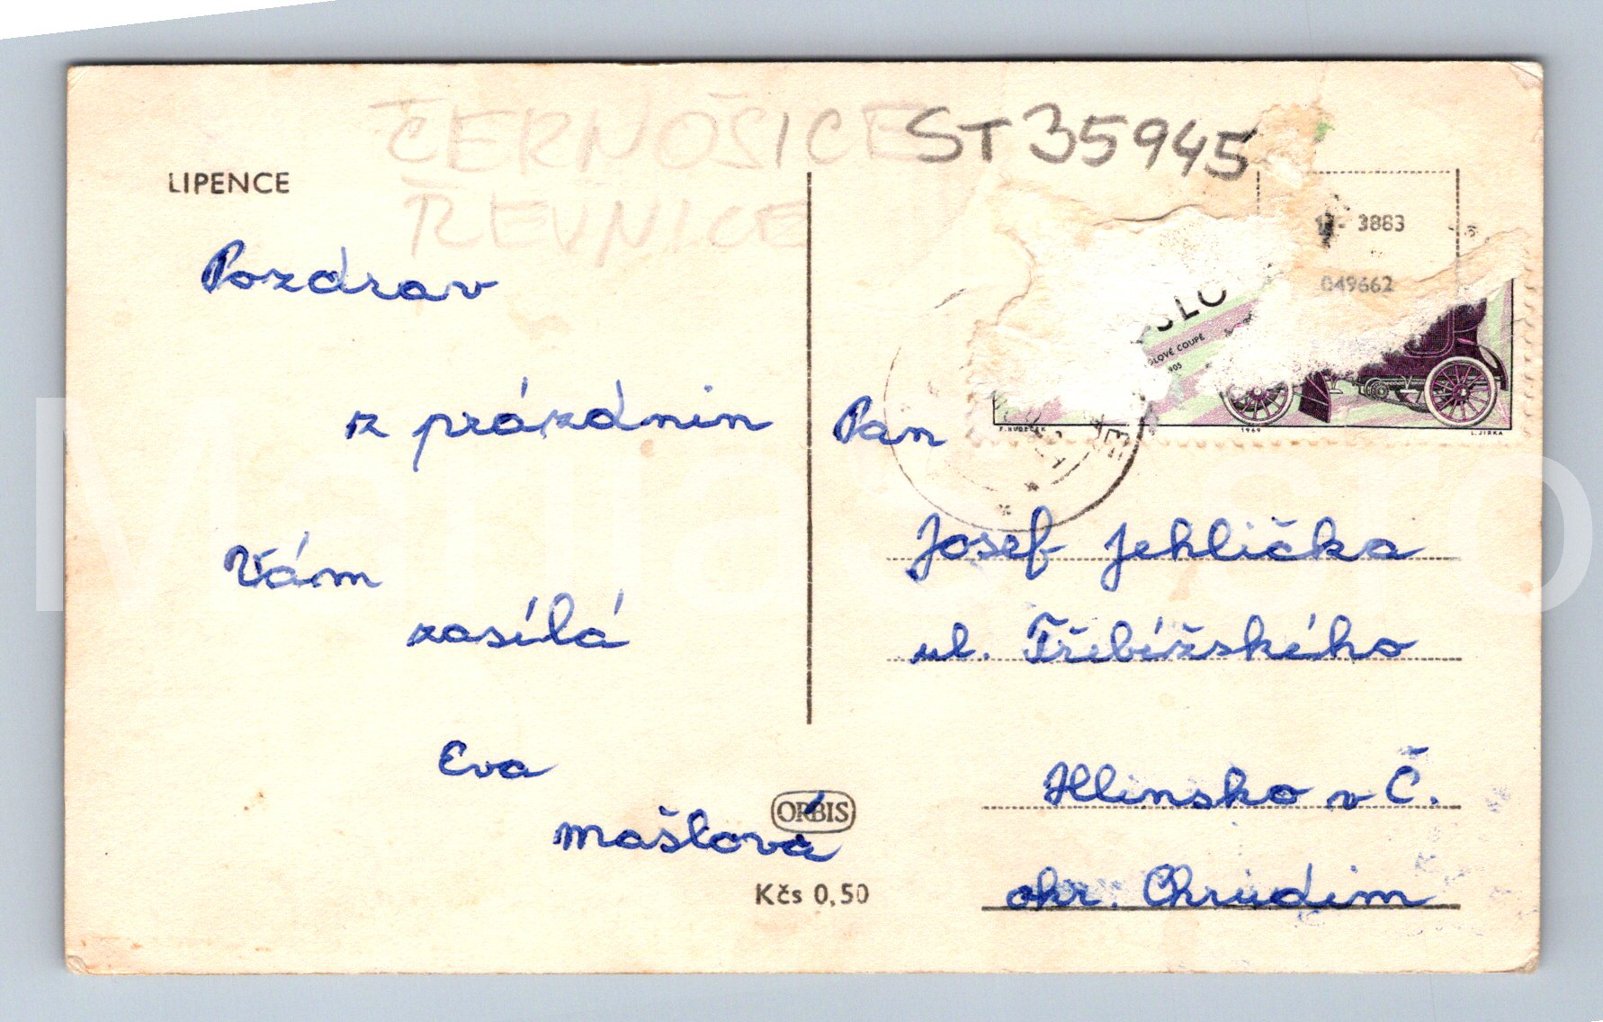 ČERNOŠICE
ŘEVNICE
ST 35945
LIPENCE
Pozdrav
z prázdnin
Vám
zasílá
Eva
Mašlová
ORBIS
Kčs 0,50
3883
049662
SLO
GLOVÉ COUPÉ
1905
1969
L. JIRKA
Pan
Josef Jehlička
ul. Třebížského
Hlinsko v Č.
okr. Chrudim